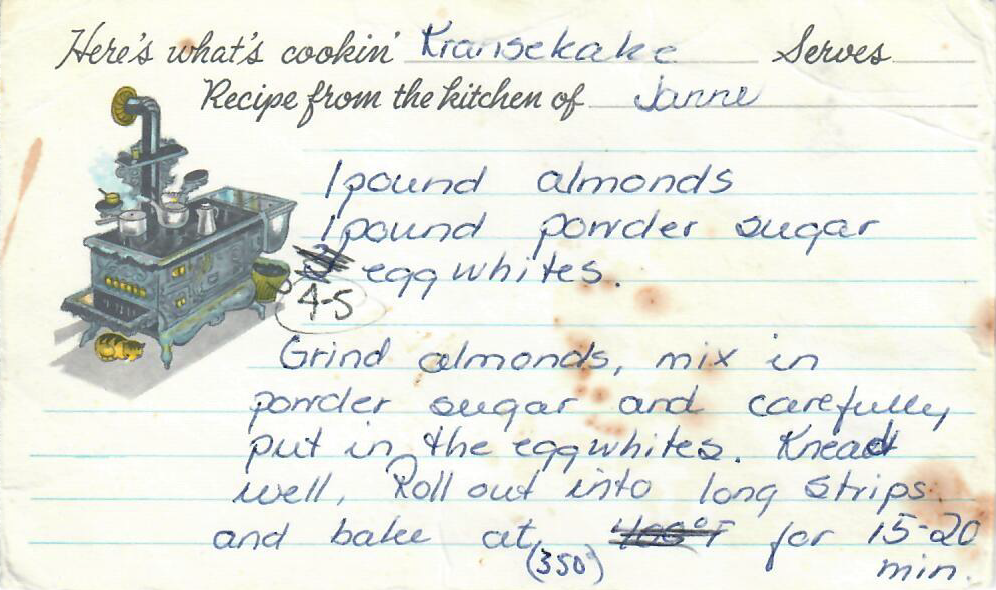 Here's what's cookin' Kransekake Serves
Recipe from the kitchen of Janne
1 pound almonds
1 pound powder sugar
egg whites.
4-5
Grind almonds, mix in
powder sugar and carefully
put in the egg whites. Knead
well, Roll out into long strips
and bake at 400°F for 15-20
(350°) min.